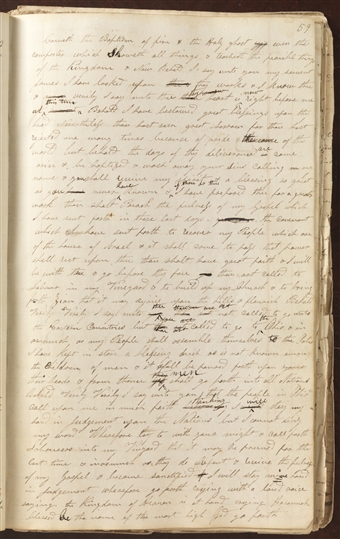 59
receiveth the Baptism of fire & the Holy ghost even the
comforter which Sheweth all things & teacheth the peaceible things
of the Kingdom & now Behold I say unto you my servent
James I have looked upon thy works & I know thee
& verily I say unto thee thine heart is now right before me
at this time & Behold I have bestowed great blessings upon thy
head nevertheless thou hast seen great sorrow for thou hast
rejected me many times because of pride & the cares of the
world but behold the days of thy deliverance are come
arise & be baptized & wash away your sins calling on
my name & you shall receive my spirit & a blessing so great
as you never have known & if thou do this I have prepared thee for a greater
work thou shalt Preach the fulness of my Gospel which
I have sent forth in these last days the covenant
which I have sent forth to recover my People which are
of the house of Israel & it shall come to pass that power
shall rest upon thee thou shalt have great faith & I will
be with thee & go before thy face thou art called to
labour in my Vineyard & to build up my Church & to bring
forth Zion that it may rejoice upon the hills & flourish Behold
Verily Verily I say unto thee thou art not called to go into
the Eastern Countries but thou art called to go to the Ohio & in
asmuch as my People shall assemble themselves to the Ohio
I have kept in store a blessing such as is not known among
the Children of men & it shall be poured forth upon their
heads & from thence men shall go forth into all Nations
Behold Verily Verily I say unto you that the people in Ohio
call upon me in much faith thinking I will stay my
hand in Judgement upon the Nations but I cannot deny
my word Wherefore lay to with your might & call faithful
labourers into my Vinyard that it may be pruned for the
last time & inasmuch as they do repent & receive the fulness
of my Gospel & become sanctified I will stay mine hand
in judgement wherefore go forth crying with a loud voice
saying the Kingdom of heaven is at hand crying Hosannah
blessed be the name of the most high God go forth